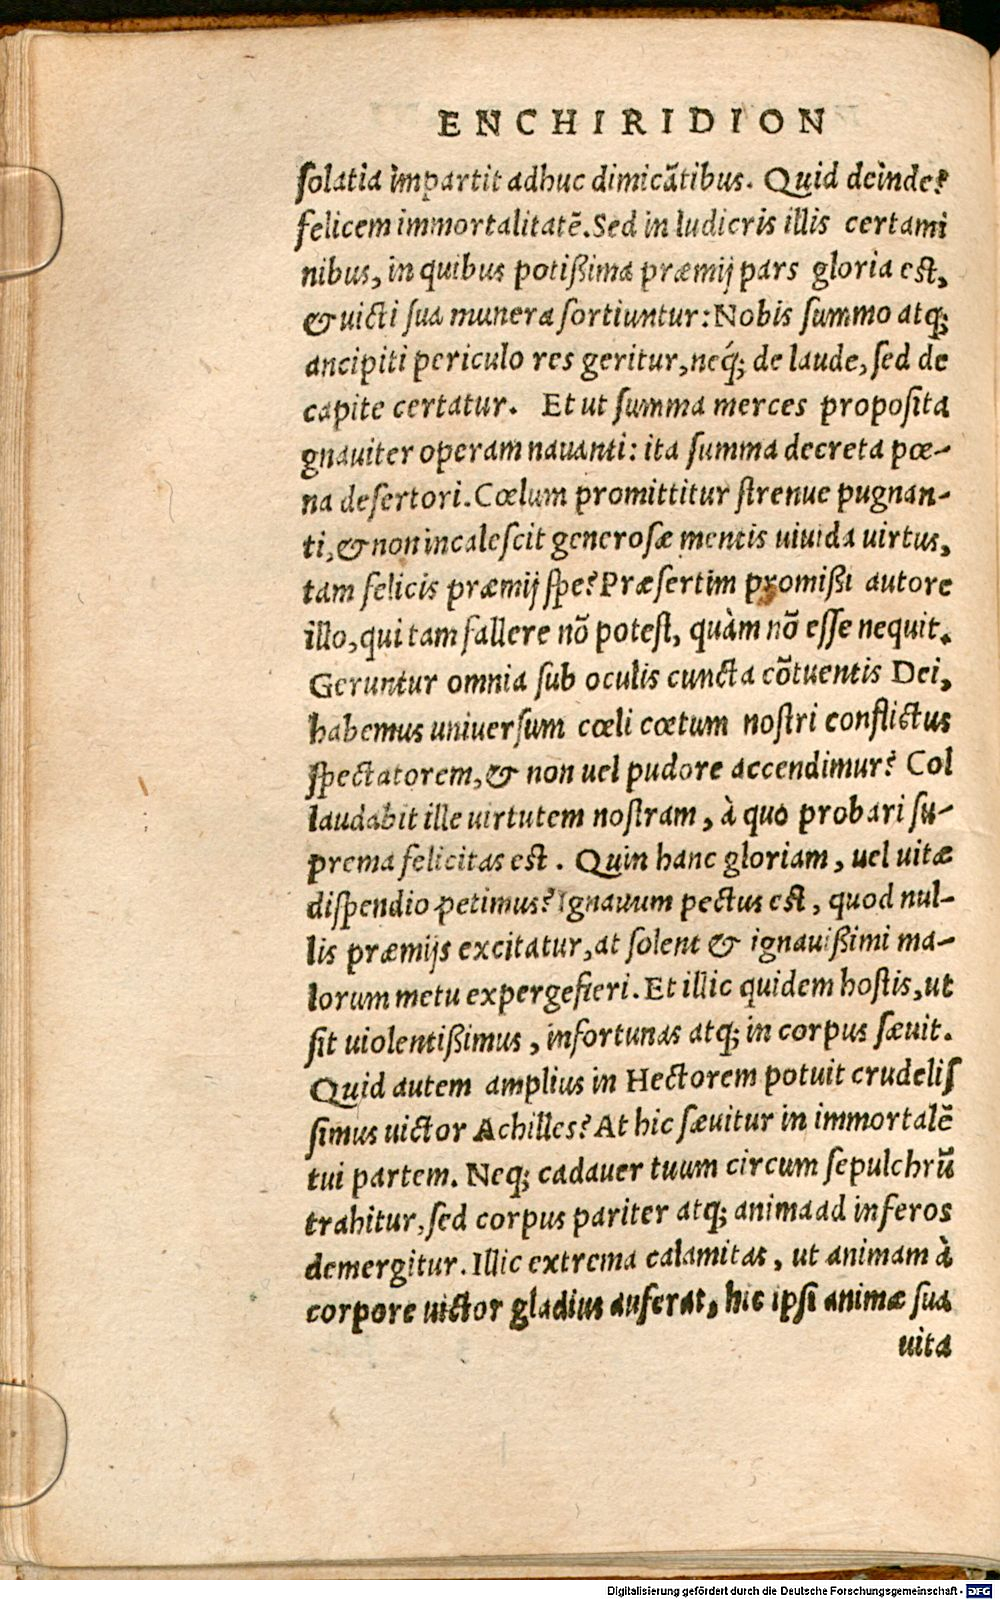 ENCHIRIDION
ſolatia impartit adhuc dimicãtibus. Quid deinde?
felicem immortalitatẽ. Sed in ludicris illis certami
nibus, in quibus potiſſima præmij pars gloria est,
& uicti ſua munera ſortiuntur: Nobis ſummo atq;
ancipiti periculo res geritur, neq́; de laude, ſed de
capite certatur. Et ut ſumma merces propoſita
gnauiter operam nauanti: ita ſumma decreta pœ-
na deſertori. Cœlum promittitur ſtrenue pugnan-
ti, & non incaleſcit generoſæ mentis uiuida uirtus,
tam felicis præmij ſpe? Præſertim promißi autore
illo, qui tam fallere nõ potest, quàm nõ eſſe nequit.
Geruntur omnia ſub oculis cuncta cõtuentis Dei,
habemus uniuerſum cœli cœtum nostri conflictus
ſpectatorem, & non uel pudore accendimur? Col
laudabit ille uirtutem nostram, à quo probari ſu-
prema felicitas est. Quin hanc gloriam, uel uitæ
diſpendio petimus? Ignauum pectus est, quod nul-
lis præmijs excitatur, at ſolent & ignauißimi ma-
lorum metu expergefieri. Et illic quidem hostis, ut
ſit uiolentißimus, infortunas atq; in corpus ſæuit.
Quid autem amplius in Hectorem potuit crudeliſ
ſimus uictor Achilles? At hic ſæuitur in immortalẽ
tui partem. Neq; cadauer tuum circum ſepulchrũ
trahitur, ſed corpus pariter atq; anima ad inferos
demergitur. Illic extrema calamitas, ut animam à
corpore uictor gladius auferat, hic ipſi animæ ſua
uita
Digitalisierung gefördert durch die Deutsche Forschungsgemeinschaft - DFG